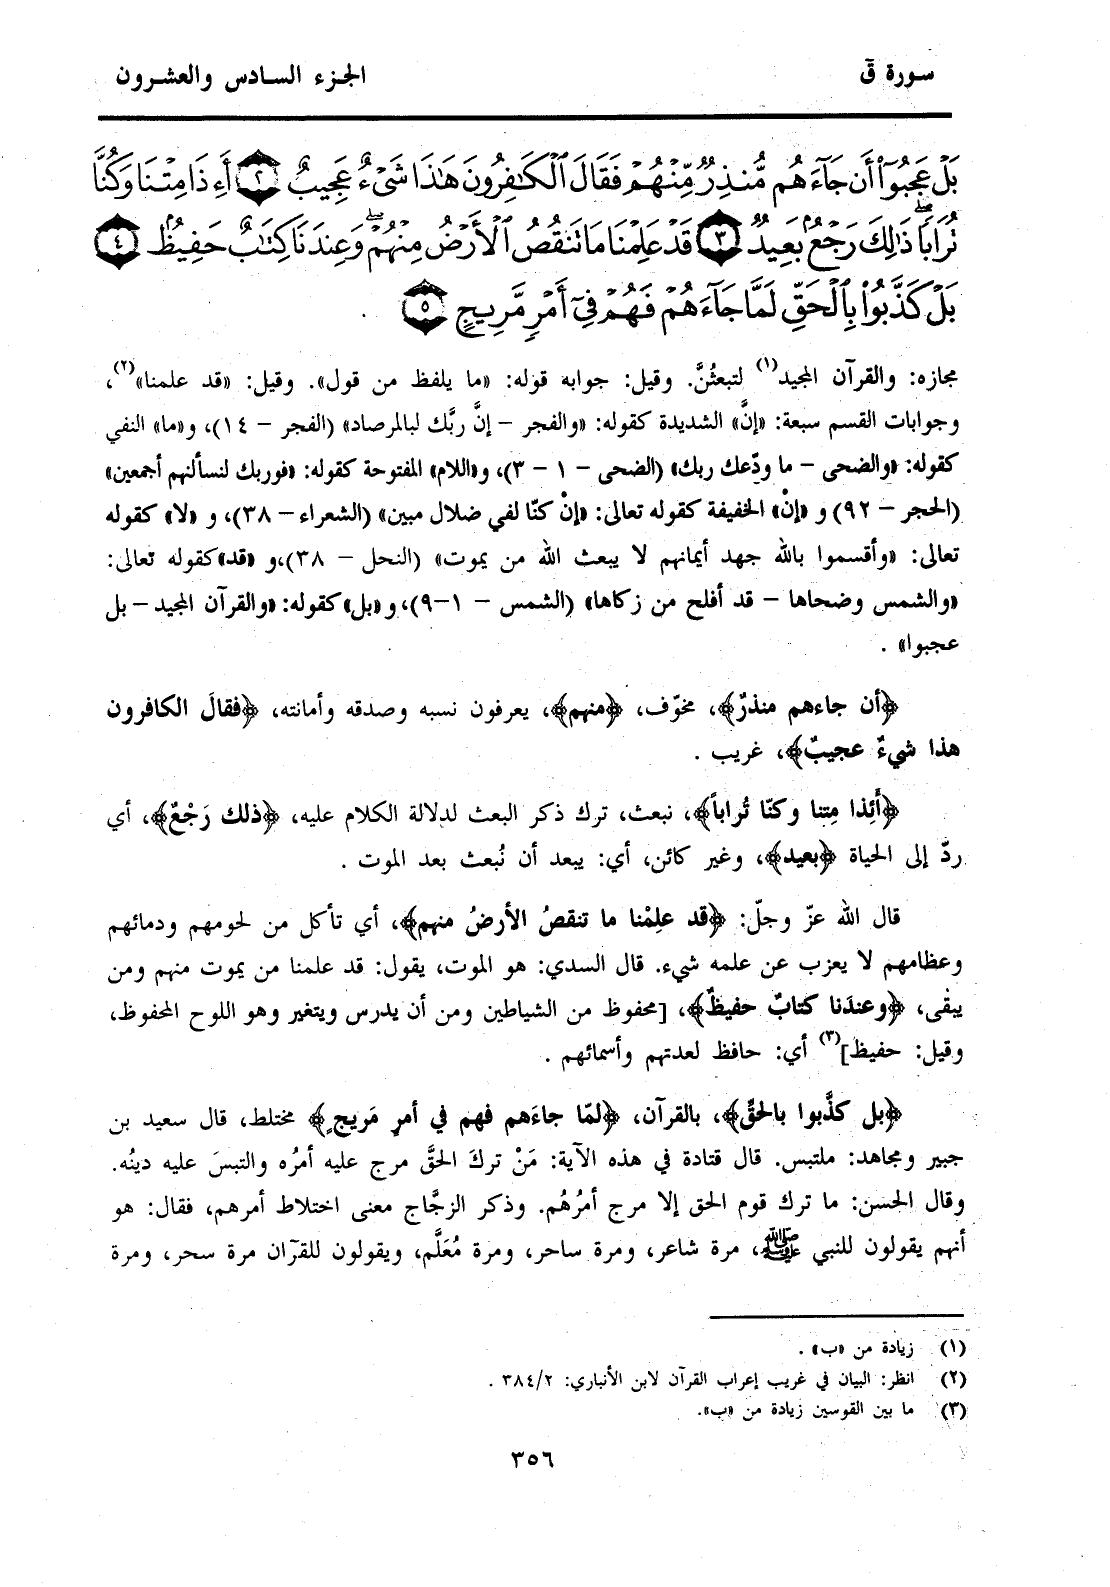 سورة ق الجزء السادس والعشرون
بَلْ عَجِبُوٓا۟ أَن جَآءَهُم مُّنذِرٌ مِّنْهُمْ فَقَالَ ٱلْكَٰفِرُونَ هَٰذَا شَىْءٌ عَجِيبٌ ٢ أَءِذَا مِتْنَا وَكُنَّا
تُرَابًا ۖ ذَٰلِكَ رَجْعٌۢ بَعِيدٌ ٣ قَدْ عَلِمْنَا مَا تَنقُصُ ٱلْأَرْضُ مِنْهُمْ ۖ وَعِندَنَا كِتَٰبٌ حَفِيظٌۢ ٤
بَلْ كَذَّبُوا۟ بِٱلْحَقِّ لَمَّا جَآءَهُمْ فَهُمْ فِىٓ أَمْرٍ مَّرِيجٍ ٥
مجازه: والقرآن المجيد(١) لتبعثُنَّ. وقيل: جوابه قوله: «ما يلفظ من قول». وقيل: «قد علمنا»(٢)،
وجوابات القسم سبعة: «إنَّ» الشديدة كقوله: «والفجر – إنَّ ربَّك لبالمرصاد» (الفجر – ١٤)، و«ما» النفي
كقوله: «والضحى – ما ودّعك ربك» (الضحى – ١ – ٣)، و«اللام» المفتوحة كقوله: «فوربك لنسألنهم أجمعين»
(الحجر – ٩٢) و «إنْ» الخفيفة كقوله تعالى: «إنْ كنّا لفي ضلال مبين» (الشعراء – ٣٨)، و «لا» كقوله
تعالى: «وأقسموا بالله جهد أيمانهم لا يبعث الله من يموت» (النحل – ٣٨)،و «قد»كقوله تعالى:
«والشمس وضحاها – قد أفلح من زكاها» (الشمس – ١–٩)، و«بل» كقوله: «والقرآن المجيد – بل
عجبوا» .
﴿أن جاءهم منذرٌ﴾، مخوّف، ﴿منهم﴾، يعرفون نسبه وصدقه وأمانته، ﴿فقالَ الكافرون
هذا شيءٌ عجيبٌ﴾، غريب .
﴿أَئِذا مِتنا وكنّا تُراباً﴾، نبعث، ترك ذكر البعث لدلالة الكلام عليه، ﴿ذلك رَجْعٌ﴾، أي
ردّ إلى الحياة ﴿بعيد﴾، وغير كائن، أي: يبعد أن نُبعث بعد الموت .
قال الله عزّ وجلّ: ﴿قد علِمْنا ما تنقصُ الأرضُ منهم﴾، أي تأكل من لحومهم ودمائهم
وعظامهم لا يعزب عن علمه شيء. قال السدي: هو الموت، يقول: قد علمنا من يموت منهم ومن
يبقى، ﴿وعندَنا كتابٌ حفيظٌ﴾، [محفوظ من الشياطين ومن أن يدرس ويتغير وهو اللوح المحفوظ،
وقيل: حفيظ](٣) أي: حافظ لعدتهم وأسمائهم .
﴿بل كذَّبوا بالحقِّ﴾، بالقرآن، ﴿لمّا جاءَهم فهم في أمرٍ مَريجٍ﴾ مختلط، قال سعيد بن
جبير ومجاهد: ملتبس. قال قتادة في هذه الآية: مَنْ تركَ الحقَّ مرج عليه أمرُه والتبسَ عليه دينُه.
وقال الحسن: ما ترك قوم الحق إلا مرج أمرُهُم. وذكر الزجَّاج معنى اختلاط أمرهم، فقال: هو
أنهم يقولون للنبي ﷺ، مرة شاعر، ومرة ساحر، ومرة مُعَلَّم، ويقولون للقرآن مرة سحر، ومرة
(١) زيادة من «ب» .
(٢) انظر: البيان في غريب إعراب القرآن لابن الأنباري: ٣٨٤/٢ .
(٣) ما بين القوسين زيادة من «ب».
٣٥٦